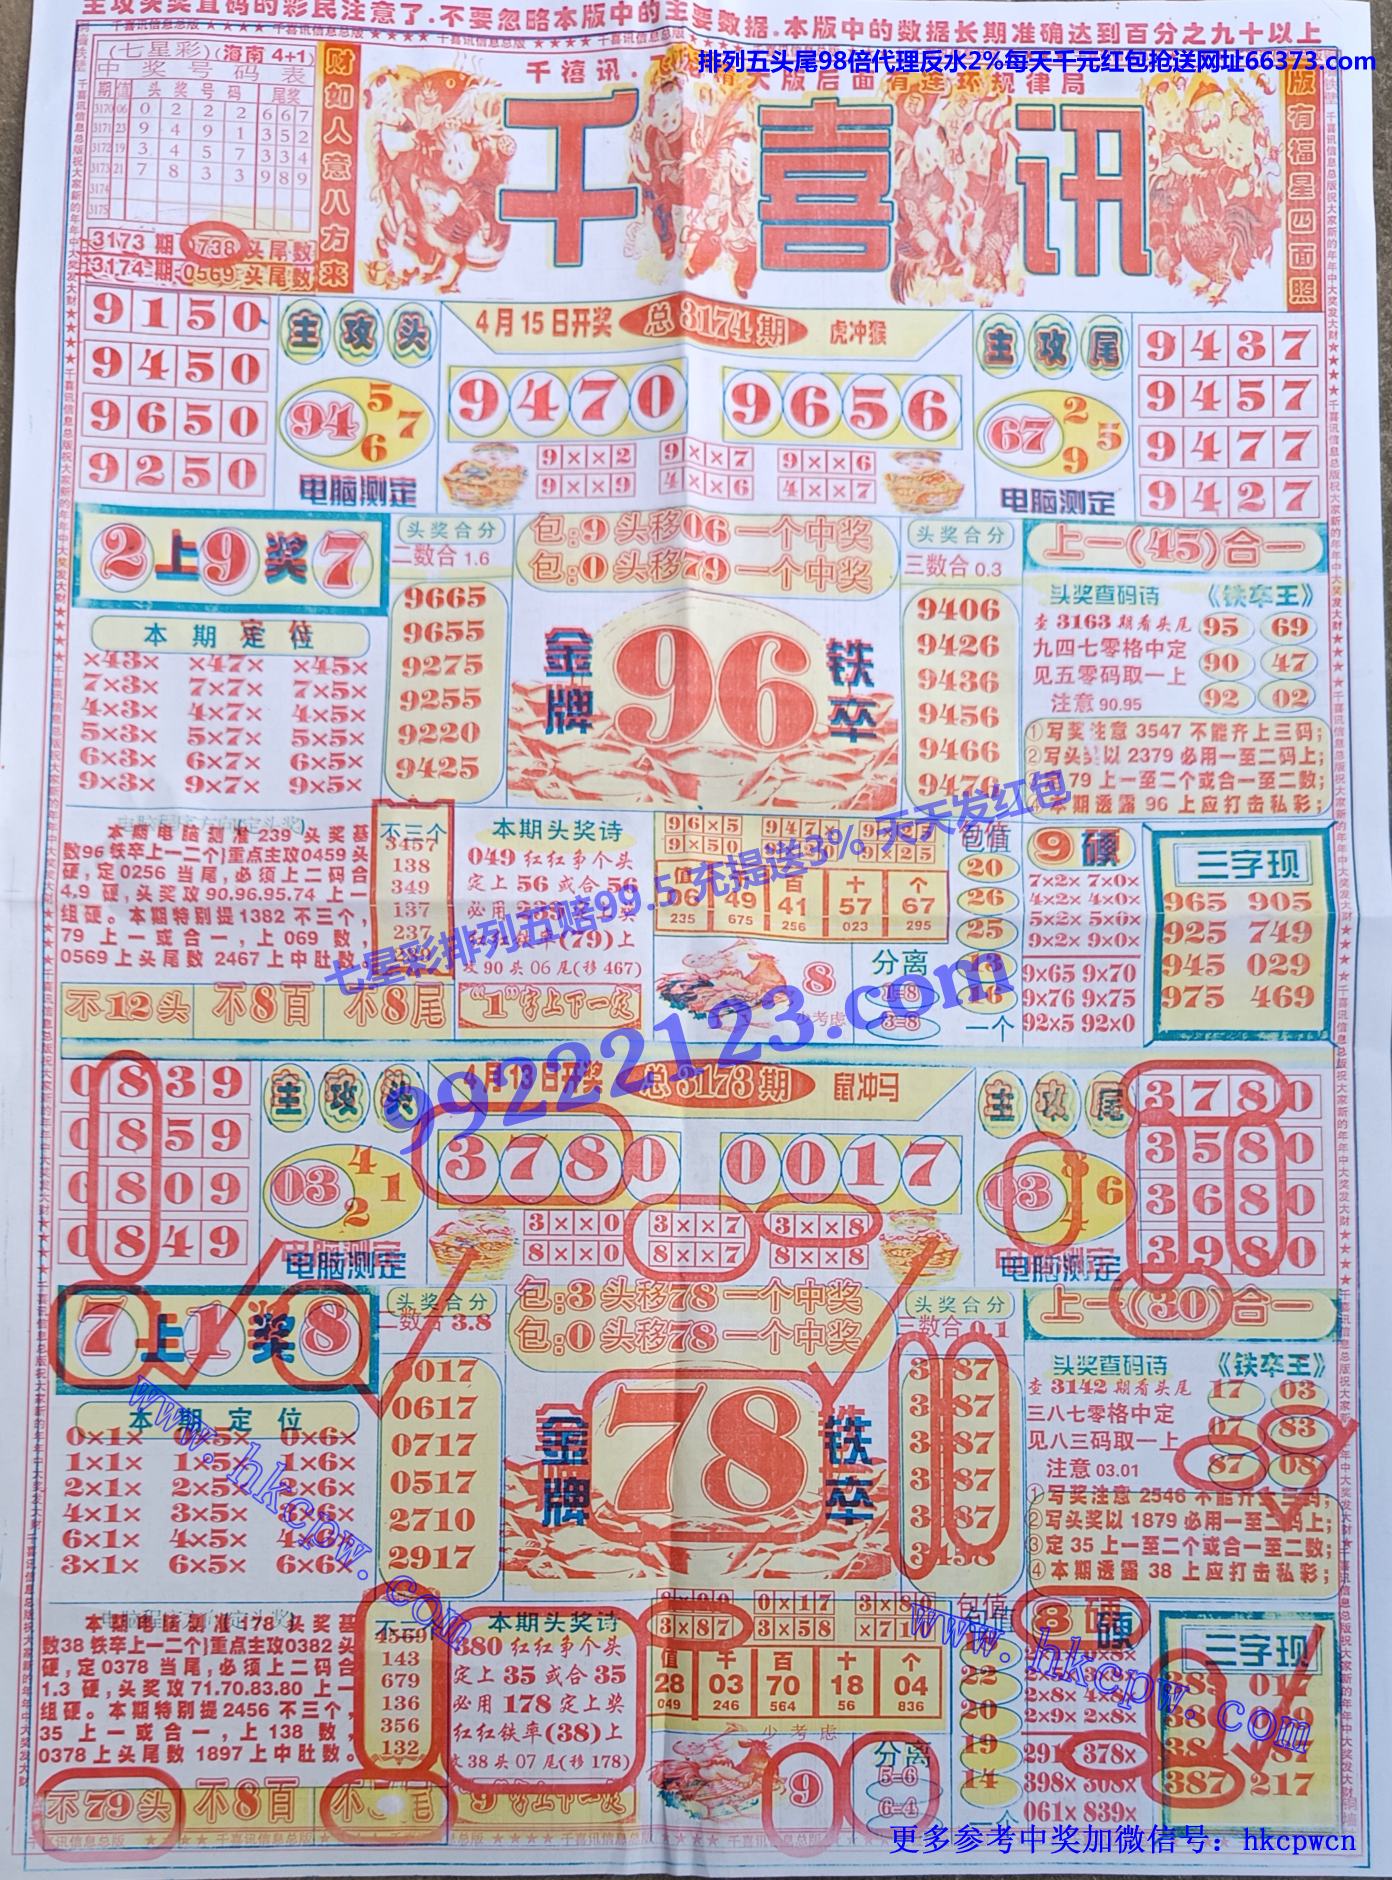 主攻头奖直码的彩民注意了.不要忽略本版中的主要数据.本版中的数据长期准确达到百分之九十以上
排列五头尾98倍代理反水2%每天千元红包抢送网址66373.com
(七星彩)(海南 4+1)
中奖号码表
期 值 头奖号码 尾奖
3170 06 0 2 2 2 6 6 7
3171 23 9 4 9 1 3 5 2
3172 19 3 4 5 7 3 3 4
3173 21 7 8 3 3 9 8 9
3174
3175
3173 期 0738 头尾数
3174 期-0569 头尾数
财如人意八方来
千喜讯
版有福星四面照
9150
9450
9650
9250
主攻头
94 5 7 6
电脑测定
4月15日开奖 总3174期 虎冲猴
9470 9656
9××2 9××7 9××6
9××9 4××6 4××7
主攻尾
67 2 5 9
电脑测定
9437
9457
9477
9427
2上9奖7
本期定位
×43× ×47× ×45×
7×3× 7×7× 7×5×
4×3× 4×7× 4×5×
5×3× 5×7× 5×5×
6×3× 6×7× 6×5×
9×3× 9×7× 9×5×
头奖合分
二数合 1.6
9665
9655
9275
9255
9220
9425
包:9头移06一个中奖
包:0头移79一个中奖
金牌 96 铁卒
头奖合分
三数合 0.3
9406
9426
9436
9456
9466
9476
上一(45)合一
头奖查码诗 《铁卒王》
查 3163 期看头尾 95 69
九四七零格中定 90 47
见五零码取一上
注意 90.95 92 02
①写奖注意 3547 不能齐上三码;
②写头奖以 2379 必用一至二码上;
定 79 上一至二个或合一至二数;
本期透露 96 上应打击私彩;
本期电脑测准 239 头奖基
数96 铁卒上一二个}重点主攻0459头
硬,定0256 当尾,必须上二码合
4.9 硬,头奖攻90.96.95.74 上一
组硬。本期特别提1382 不三个,
79 上一或合一,上 069 数,
0569 上头尾数 2467 上中肚数。
不三个
3457
138
349
137
237
本期头奖诗
049 红红争个头
定上 56 或合 56
必用 239 定上奖
红红铁率(79)上
攻 90 头 06 尾(移 467)
96×5 947× 9×27
9×50 9×26 9×25
值 千 百 十 个
06 49 41 57 67
235 675 256 023 295
8
少考虑
分离
1=8
3=8
包值
20
26
25
13
16
一个
9硬
7×2× 7×0×
4×2× 4×0×
5×2× 5×0×
9×2× 9×0×
9×65 9×70
9×76 9×75
92×5 92×0
三字现
965 905
925 749
945 029
975 469
不12头 不8百 不8尾
"1"字上下一定
七星彩排列五赔99.5 充提送3% 天天发红包
99222123.com
0839
0859
0809
0849
主攻头
03 4 1 2
电脑测定
4月13日开奖 总3173期 鼠冲马
3780 0017
3××0 3××7 3××8
8××0 8××7 8××8
主攻尾
03 6 4
电脑测定
3780
3580
3680
3980
7上1奖8
本期定位
0×1× 0×5× 0×6×
1×1× 1×5× 1×6×
2×1× 2×5× 2×6×
4×1× 3×5× 3×6×
6×1× 4×5×
3×1× 6×5× 6×6×
头奖合分
二数合 3.8
0017
0617
0717
0517
2710
2917
包:3头移78一个中奖
包:0头移78一个中奖
金牌 78 铁卒
头奖合分
三数合 0.1
上一(30)合一
头奖查码诗 《铁卒王》
查 3142 期看头尾 17 03
三八七零格中定 07 83
见八三码取一上 87 08
注意 03.01
①写奖注意 2546 不能齐上三码;
②写头奖以 1879 必用一至二码上;
③定 35 上一至二个或合一至二数;
④本期透露 38 上应打击私彩;
本期电脑测准 178 头奖基
数38 铁卒上一二个}重点主攻0382头
硬,定0378 当尾,必须上二码合
1.3 硬,头奖攻71.70.83.80 上一
组硬。本期特别提2456 不三个,
35 上一或合一,上 138 数,
0378 上头尾数 1897 上中肚数。
4569
143
679
136
356
132
本期头奖诗
380 红红争个头
定上 35 或合 35
必用 178 定上奖
红红铁率(38)上
攻 38 头 07 尾(移 178)
0×17 3×80
3×87 3×58 ×71
值 千 百 十 个
28 03 70 18 04
049 246 564 56 836
少考虑
9
分离
5=6
6=4
包值
22
20
19
14
一个
8硬
2×8× 4×8×
2×9× 2×8×
291× 378×
398× 308×
061× 839×
三字现
383 017
387 217
不79头 不8百
"9"字上下一定
千喜讯信息总版
www.hkcpw.com
www.hkcpw.com
更多参考中奖加微信号: hkcpwcn